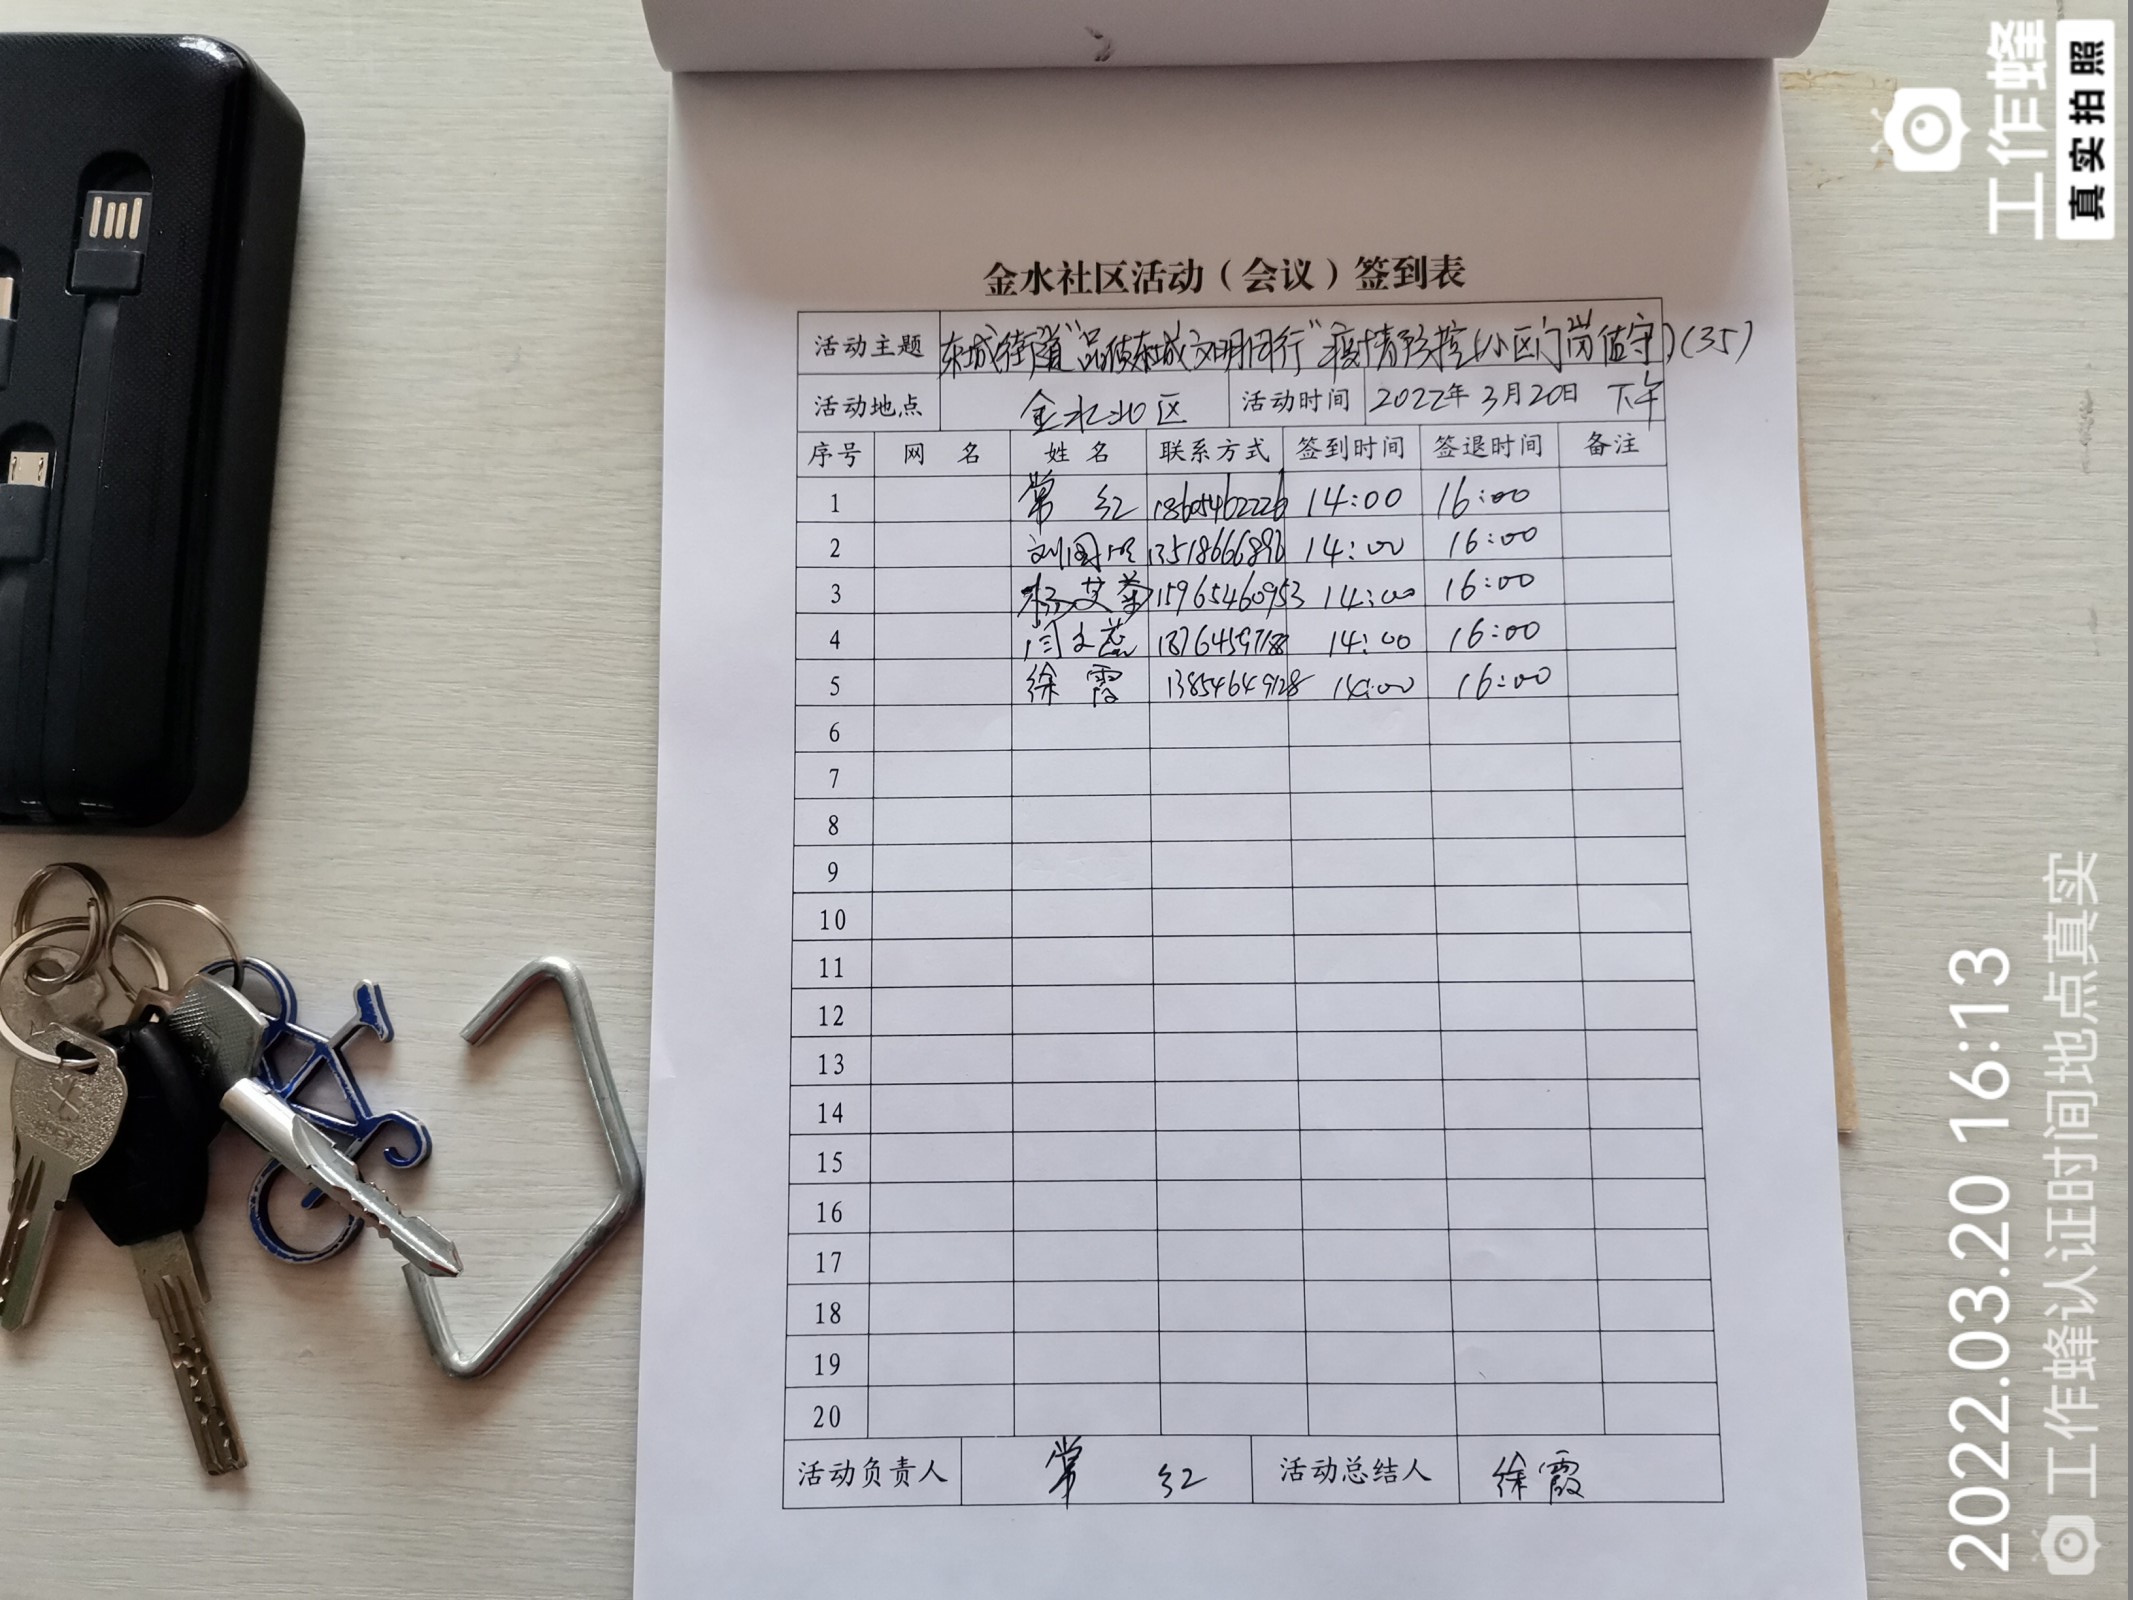 金水社区活动（会议）签到表
活动主题 东城街道“品质东城文明同行”疫情防控（小区门岗值守）(35)
活动地点 金水北区 活动时间 2022年3月20日 下午
序号 网 名 姓 名 联系方式 签到时间 签退时间 备注
1 常 红 18605462226 14:00 16:00
2 刘国 14:00 16:00
3 杨艾 15965460953 14:00 16:00
4 闫文 18764597188 14:00 16:00
5 徐 霞 13854649128 14:00 16:00
6
7
8
9
10
11
12
13
14
15
16
17
18
19
20
活动负责人 常 红 活动总结人 徐霞
工作蜂
真实拍照
2022.03.20 16:13
工作蜂认证时间地点真实